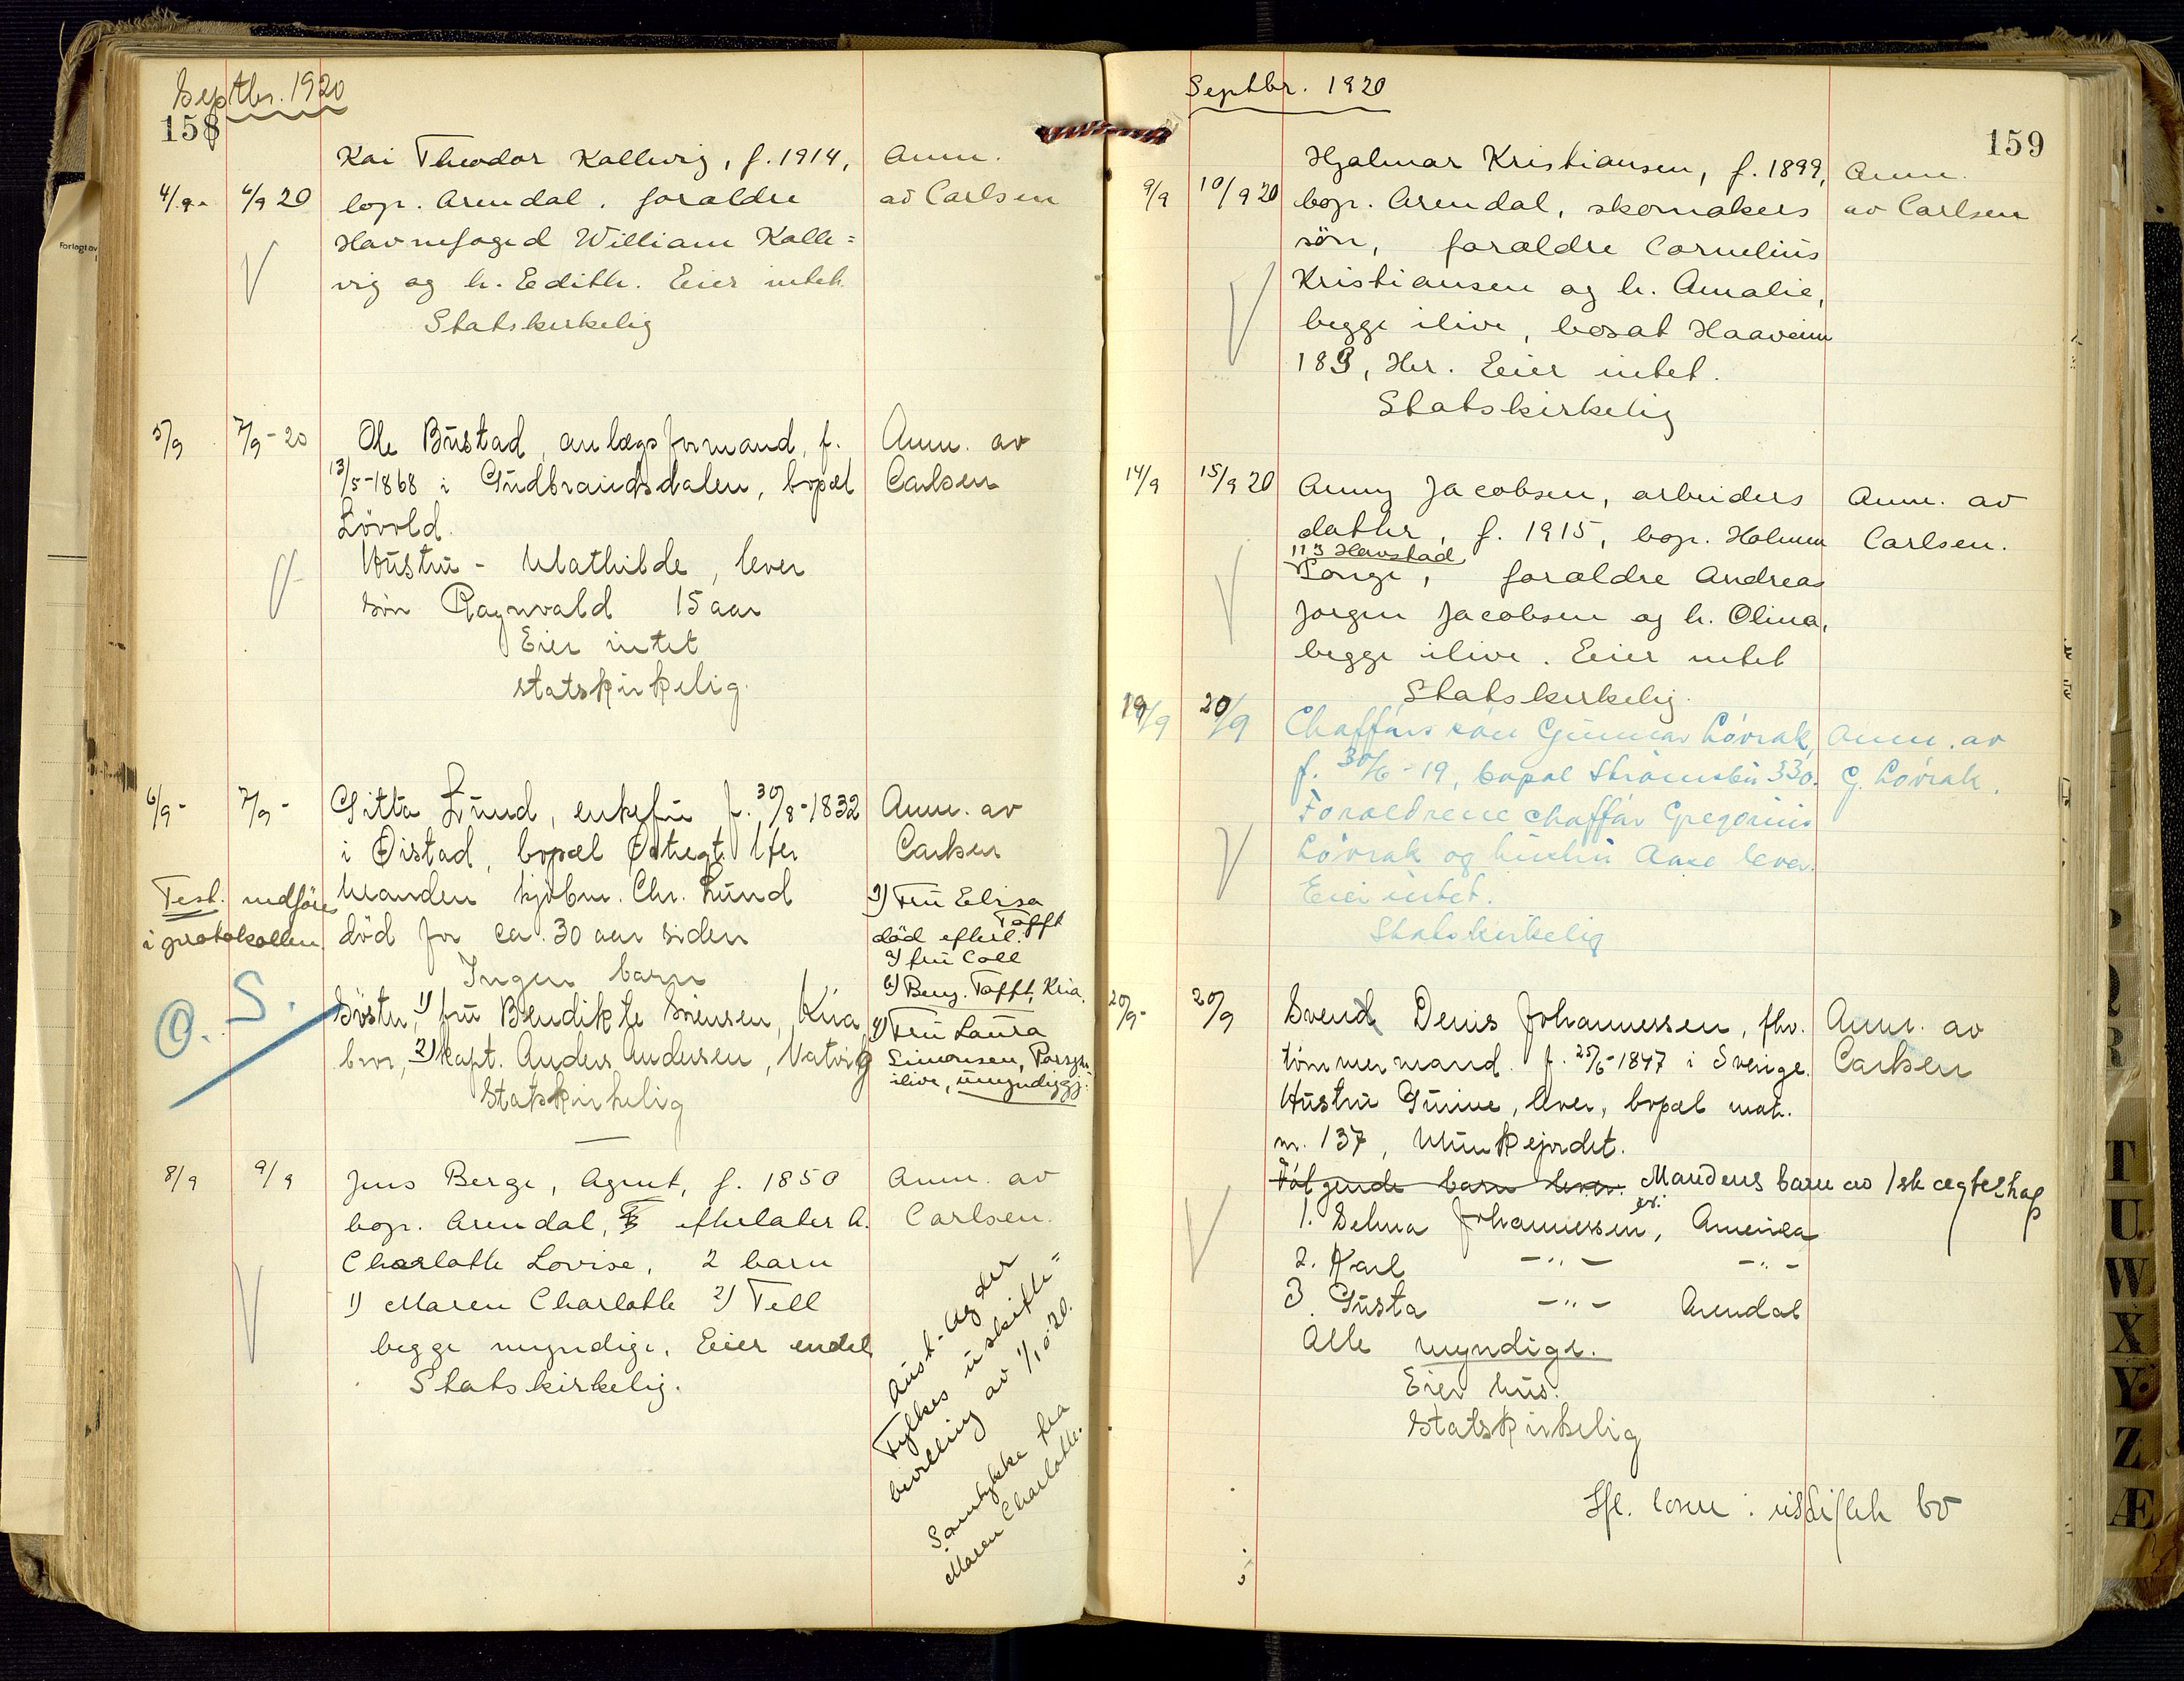 Septbr. 1920
158
Kai Theodor Kallevig, f. 1914,
Anm.
4/9. 6/9 20 bop. Arendal. foraldre
av Carlsen
Havnefoged William Kalle=
vig og h. Edith. Eier intet
Statskirkelig
5/9 7/9-20 Ole Bustad, anlægsformand, f.
Anm. av
13/5-1868 i Gudbrandsdalen, bopæl
Carlsen
Lövold.
Hustru - Mathilde, lever
Sön Ragnvald 15 aar
Eier intet
Statskirkelig.
6/9- 7/9- Gitta Lund, enkefru f. 30/8-1832
Anm. av
i Öistad, bopæl Östregt.
Carlsen
Test. indföres
i protokollen
Manden kjöbm. Chr. Lund
död for ca. 30 aar siden
Ingen barn
O. S.
Söster, 1) fru Bendikte Sörensen, Kria
bror, 2) kapt. Anders Andersen, Natvig
Statskirkelig
3) Fru Elisa
Tofft
död efterl.
a) fru Coll
b) Beny. Tofft, Kria.
4) Fru Laura
Simonsen, Porsgr.
ilive, umyndiggj.
8/9 9/9 Jens Berge, Agent, f. 1850
Anm. av
bop. Arendal, efterlater h.
Carlsen.
Charlotte Lovise, 2 barn
1) Maren Charlotte 2) Tell
begge myndige, Eier endel
Statskirkelig.
Aust-Agder
Fylkes uskifte=
bevilling av 1/10-20.
Samtykke fra
Maren Charlotte.
Septbr. 1920
159
Hjalmar Kristiansen, f. 1899,
Anm.
9/9 10/9 20 bop. Arendal, skomakers
av Carlsen
sön, foraldre Cornelius
Kristiansen og h. Amalie,
begge ilive, bosat Haaveim
189, Her. Eier intet.
Statskirkelig
14/9 15/9 20 Anny Jacobsen, arbeiders
Anm. av
datter, f. 1915, bop. Holmen
Carlsen.
113 Havstad
foraldre Andreas
Jorgen Jacobsen og h. Olina,
begge ilive. Eier intet
Statskirkelig.
19/9 20/9 Chafförs sön Gunnar Lövrak,
Anm. av
f. 30/6-19, bopæl Strömsbu 330.
G. Lövrak.
Foraldrene chafför Gregorius
Lövrak og hustru Aase lever.
Eier intet.
Statskirkelig
20/9- 20/9 Svend Denis Johannessen, fhv.
Anm. av
tömmermand f. 25/6-1847 i Sverige.
Carlsen
Hustru Gunine, lever, bopæl matr.
nr. 137, Munkejordet.
Fölgende barn lever. Mandens barn av 1ste egteskap
er:
1. Selma Johannessen, Amerika
2. Karl -"- -"-
3. Gusta -"- Arendal
Alle myndige.
Eier hus.
Statskirkelig
Hfl. uskiftet bo
T
U
W
X
Y
Z
Æ